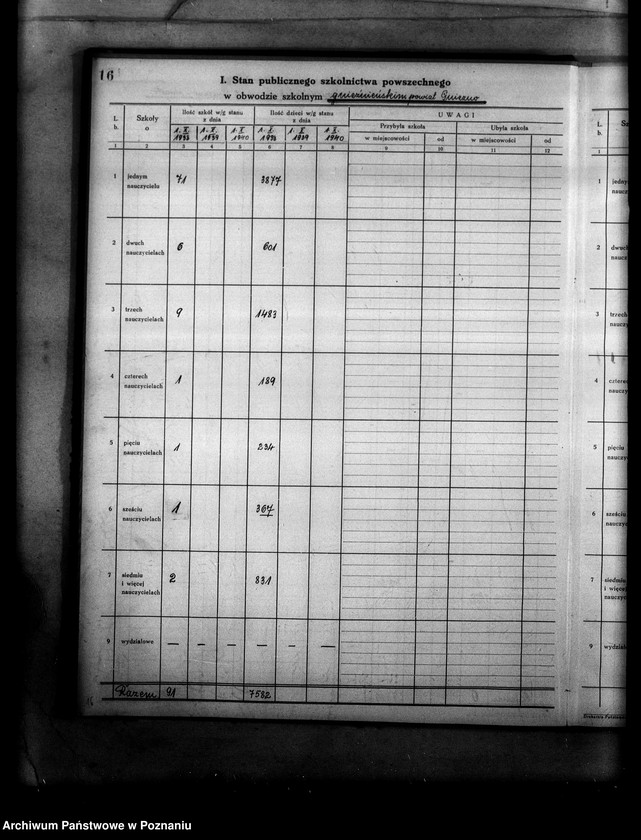 16
I. Stan publicznego szkolnictwa powszechnego
w obwodzie szkolnym gnieźnieńskim powiat Gniezno
L. b. Szkoły o Ilość szkół w/g stanu z dnia Ilość dzieci w/g stanu z dnia UWAGI
Przybyła szkoła Ubyła szkoła
1939 1940 1939 1940 w miejscowości od w miejscowości od
1 2 3 4 5 6 7 8 9 10 11 12
1 jednym nauczycielu 71 3877
2 dwuch nauczycielach 6 601
3 trzech nauczycielach 9 1483
4 czterech nauczycielach 1 189
5 pięciu nauczycielach 1 234
6 sześciu nauczycielach 1 367
7 siedmiu i więcej nauczycielach 2 831
9 wydziałowe — — — — — —
Razem 91 7582
L. b.
1 jednym
2
3 trzech
4
5 pięciu
6 sześciu
7 siedmiu i więcej
9
Archiwum Państwowe w Poznaniu